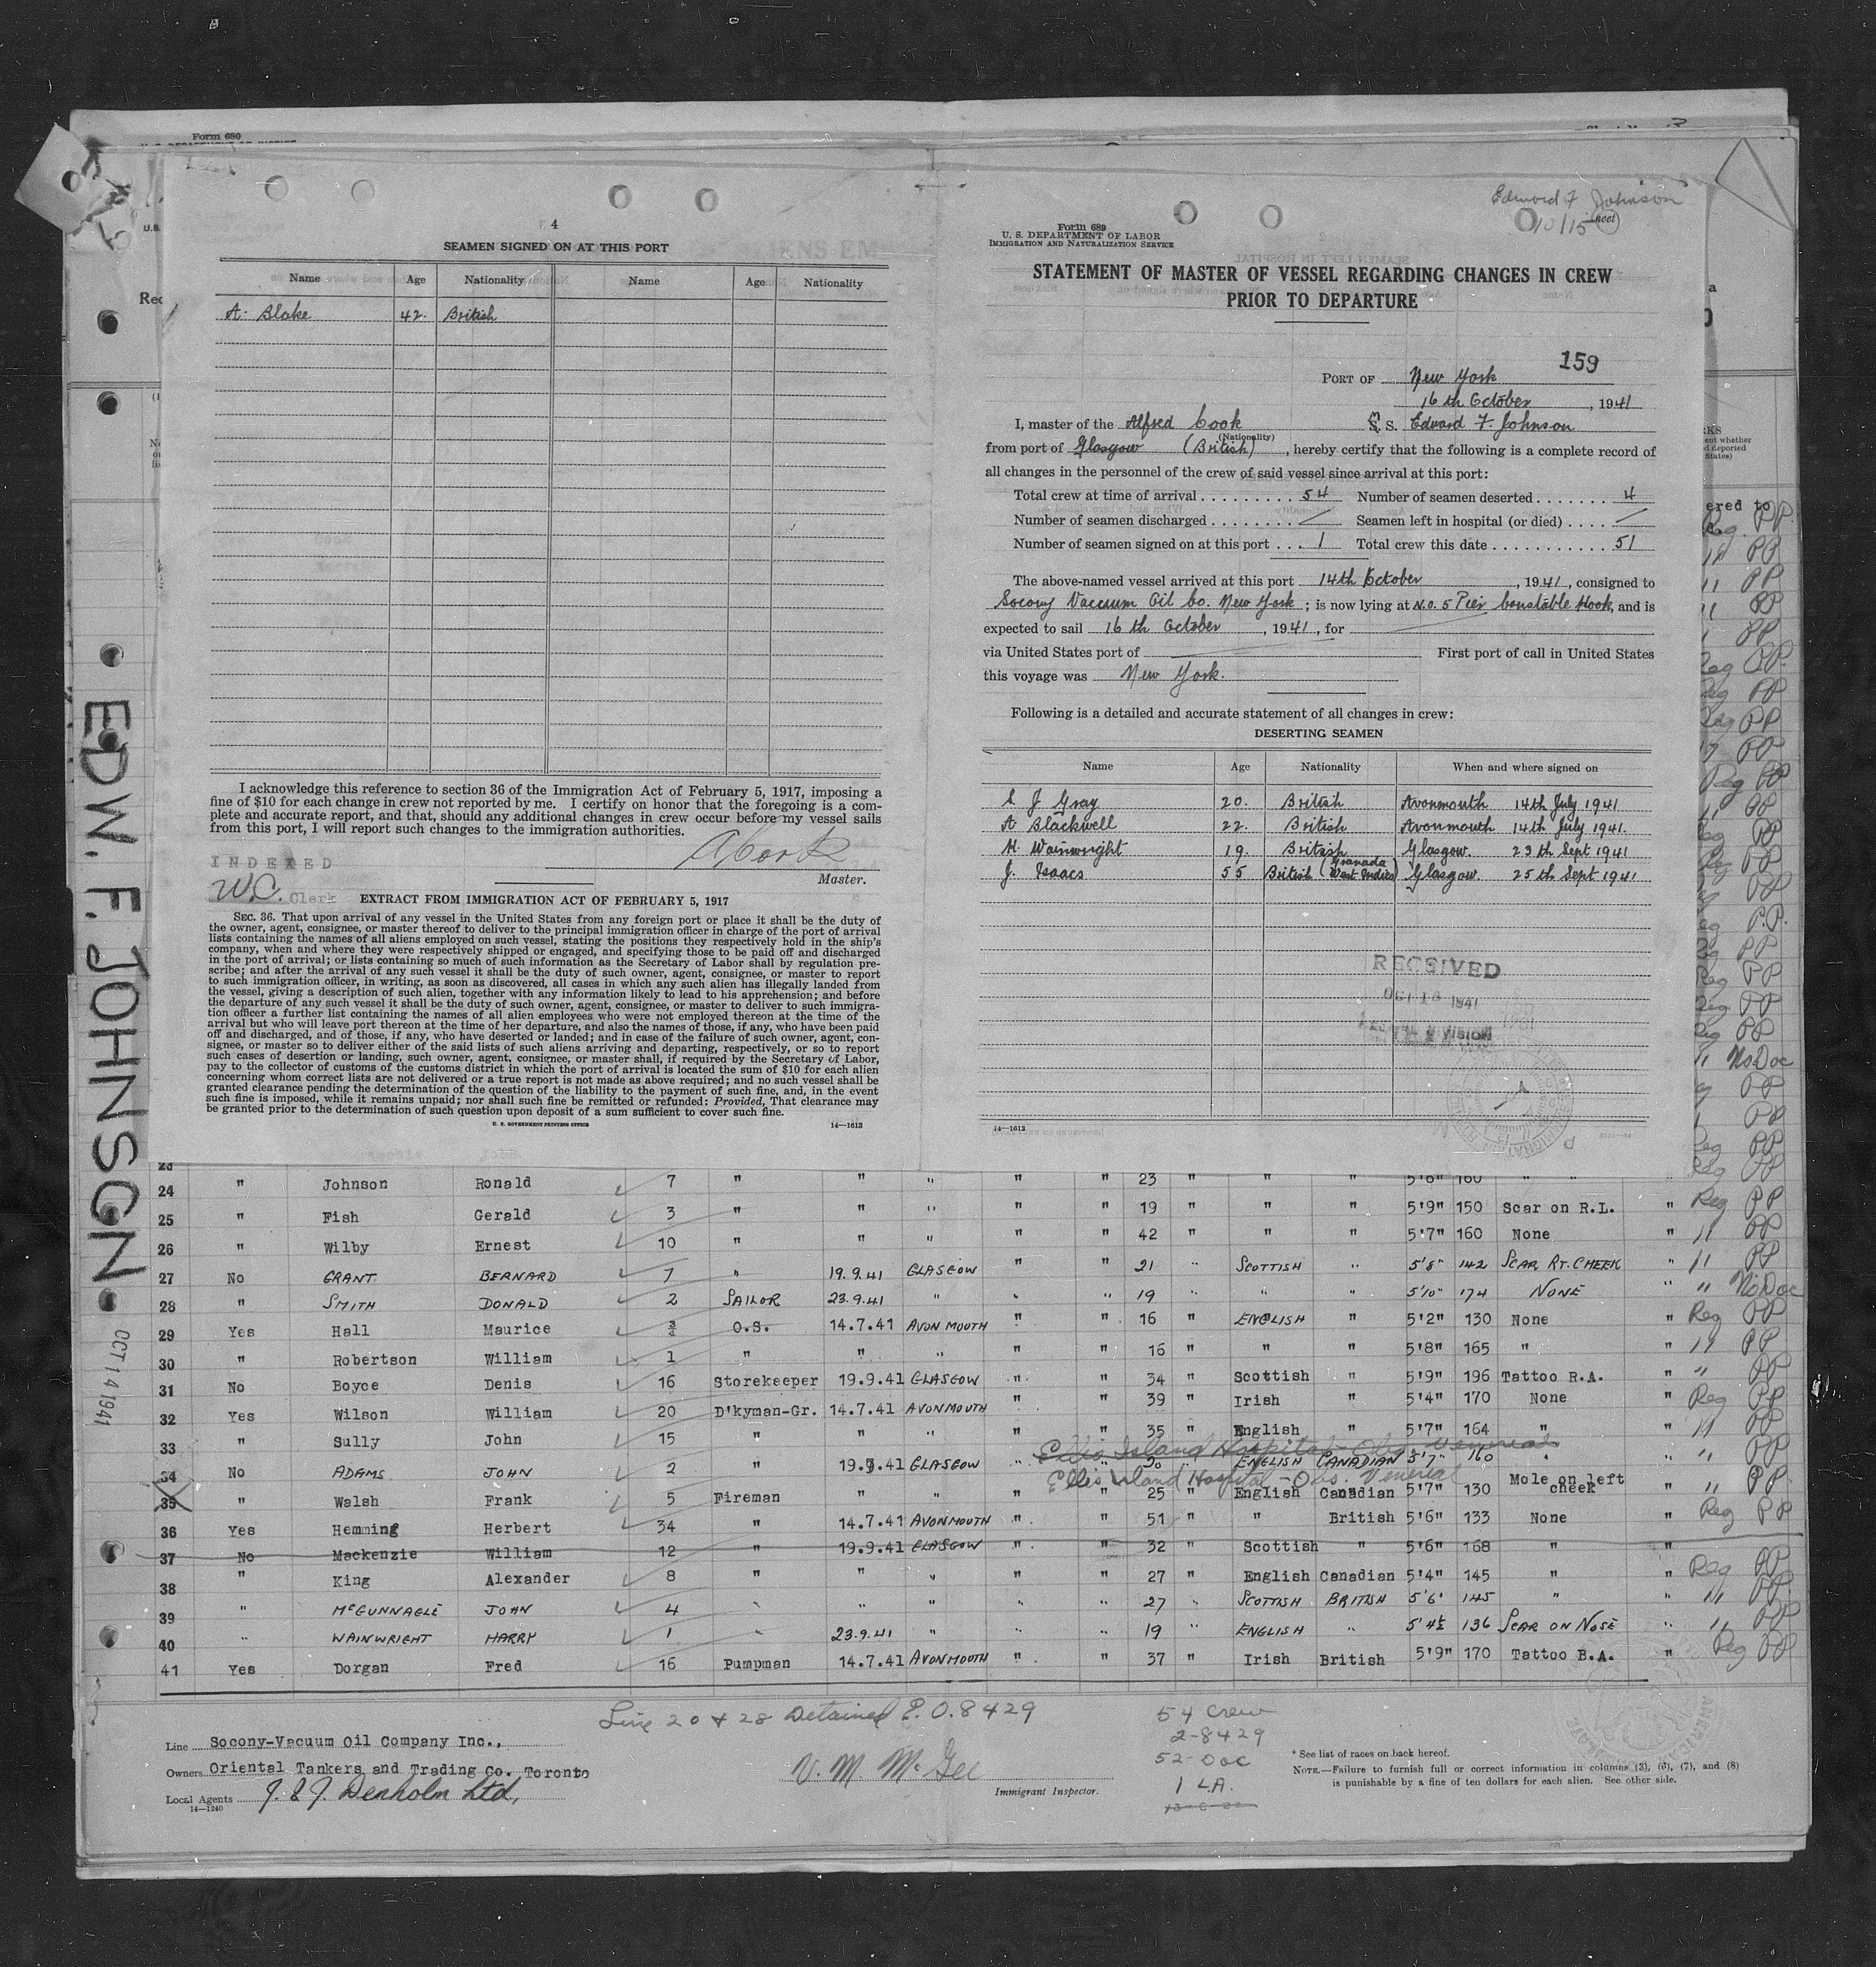 Form 680
4
SEAMEN SIGNED ON AT THIS PORT
Name Age Nationality Name Age Nationality
A. Blake 42. British
I acknowledge this reference to section 36 of the Immigration Act of February 5, 1917, imposing a
fine of $10 for each change in crew not reported by me. I certify on honor that the foregoing is a com-
plete and accurate report, and that, should any additional changes in crew occur before my vessel sails
from this port, I will report such changes to the immigration authorities.
A Cook
Master.
INDEXED
W.C. Clerk
EXTRACT FROM IMMIGRATION ACT OF FEBRUARY 5, 1917
SEC. 36. That upon arrival of any vessel in the United States from any foreign port or place it shall be the duty of
the owner, agent, consignee, or master thereof to deliver to the principal immigration officer in charge of the port of arrival
lists containing the names of all aliens employed on such vessel, stating the positions they respectively hold in the ship's
company, when and where they were respectively shipped or engaged, and specifying those to be paid off and discharged
in the port of arrival; or lists containing so much of such information as the Secretary of Labor shall by regulation pre-
scribe; and after the arrival of any such vessel it shall be the duty of such owner, agent, consignee, or master to report
to such immigration officer, in writing, as soon as discovered, all cases in which any such alien has illegally landed from
the vessel, giving a description of such alien, together with any information likely to lead to his apprehension; and before
the departure of any such vessel it shall be the duty of such owner, agent, consignee, or master to deliver to such immigra-
tion officer a further list containing the names of all alien employees who were not employed thereon at the time of the
arrival but who will leave port thereon at the time of her departure, and also the names of those, if any, who have been paid
off and discharged, and of those, if any, who have deserted or landed; and in case of the failure of such owner, agent, con-
signee, or master so to deliver either of the said lists of such aliens arriving and departing, respectively, or so to report
such cases of desertion or landing, such owner, agent, consignee, or master shall, if required by the Secretary of Labor,
pay to the collector of customs of the customs district in which the port of arrival is located the sum of $10 for each alien
concerning whom correct lists are not delivered or a true report is not made as above required; and no such vessel shall be
granted clearance pending the determination of the question of the liability to the payment of such fine, and, in the event
such fine is imposed, while it remains unpaid; nor shall such fine be remitted or refunded: Provided, That clearance may
be granted prior to the determination of such question upon deposit of a sum sufficient to cover such fine.
U. S. GOVERNMENT PRINTING OFFICE 14—1613
Edward F Johnson
10/15
Form 689
U. S. DEPARTMENT OF LABOR
IMMIGRATION AND NATURALIZATION SERVICE
STATEMENT OF MASTER OF VESSEL REGARDING CHANGES IN CREW
PRIOR TO DEPARTURE
159
PORT OF New York
16th October, 1941
I, master of the Alfred Cook M S. S. Edward F. Johnson
from port of Glasgow (British) (Nationality), hereby certify that the following is a complete record of
all changes in the personnel of the crew of said vessel since arrival at this port:
Total crew at time of arrival 54 Number of seamen deserted 4
Number of seamen discharged / Seamen left in hospital (or died) /
Number of seamen signed on at this port 1 Total crew this date 51
The above-named vessel arrived at this port 14th October, 1941, consigned to
Socony Vaccum Oil Co. New York; is now lying at N.o. 5 Pier Constable Hook, and is
expected to sail 16th October, 1941, for
via United States port of First port of call in United States
this voyage was New York.
Following is a detailed and accurate statement of all changes in crew:
DESERTING SEAMEN
Name Age Nationality When and where signed on
S. J Gray 20. British Avonmouth 14th July 1941
A Blackwell 22. British Avonmouth 14th July 1941.
H. Wainwright 19. British Glasgow. 23th Sept 1941
J. Isaacs 55 British (Granada West Indies) Glasgow. 25th Sept 1941
RECEIVED
OCT 16 1941
14—1613
EDW. F. JOHNSON
OCT 14 1941
24 " Johnson Ronald 7 " " " " " 23 " " " 5'6" 160 " "
25 " Fish Gerald 3 " " " " " 19 " " " 5'9" 150 Scar on R.L. " Reg PP
26 " Wilby Ernest 10 " " " " " 42 " " " 5'7" 160 None " " PP
27 No GRANT BERNARD 7 " 19.9.41 GLASGOW " " 21 " SCOTTISH " 5'8" 142 SCAR RT. CHEEK " " PP
28 " SMITH DONALD 2 SAILOR 23.9.41 " " " 19 " " " 5'10" 174 NONE " " No Doc
29 Yes Hall Maurice 3/4 O.S. 14.7.41 AVONMOUTH " " 16 " ENGLISH " 5'2" 130 None " Reg PP
30 " Robertson William 1 " " " " " 16 " " " 5'8" 165 " " " PP
31 No Boyce Denis 16 Storekeeper 19.9.41 GLASGOW " " 34 " Scottish " 5'9" 196 Tattoo R.A. " " PP
32 Yes Wilson William 20 D'kyman-Gr. 14.7.41 AVONMOUTH " " 39 " Irish " 5'4" 170 None " Reg PP
33 " Sully John 15 " " " " " 35 " English " 5'7" 164 " " " PP
Ellis Island Hospital - Obs. Venereal
34 No ADAMS JOHN 2 " 19.9.41 GLASGOW " " 20 " ENGLISH CANADIAN 5'7" 160 " " " PP
Ellis Island Hospital - Obs. Venereal
35 " Walsh Frank 5 Fireman " " " " 25 " English Canadian 5'7" 130 Mole on left cheek " " PP
36 Yes Hemming Herbert 34 " 14.7.41 AVONMOUTH " " 51 " " British 5'6" 133 None " Reg PP
37 No Mackenzie William 12 " 19.9.41 GLASGOW " " 32 " Scottish " 5'6" 168 " "
38 " King Alexander 8 " " " " " 27 " English Canadian 5'4" 145 " " Reg PP
39 " McGUNNAGLE JOHN 4 " " " " " 27 " SCOTTISH BRITISH 5'6" 145 " " " PP
40 " WAINWRIGHT HARRY 1 " 23.9.41 " " " 19 " ENGLISH " 5'4½ 136 SCAR ON NOSE " " PP
41 Yes Dorgan Fred 16 Pumpman 14.7.41 AVONMOUTH " " 37 " Irish British 5'9" 170 Tattoo B.A. " Reg PP
Line 20 & 28 Detained P.O. 8429
54 Crew
2-8429
52-Doc
1 LA.
Line Socony-Vacuum Oil Company Inc.,
Owners Oriental Tankers and Trading Co. Toronto
Local Agents J. & J. Denholm Ltd,
14—1240
V. M. McGee
Immigrant Inspector.
* See list of races on back hereof.
NOTE.—Failure to furnish full or correct information in columns (3), (6), (7), and (8)
is punishable by a fine of ten dollars for each alien. See other side.